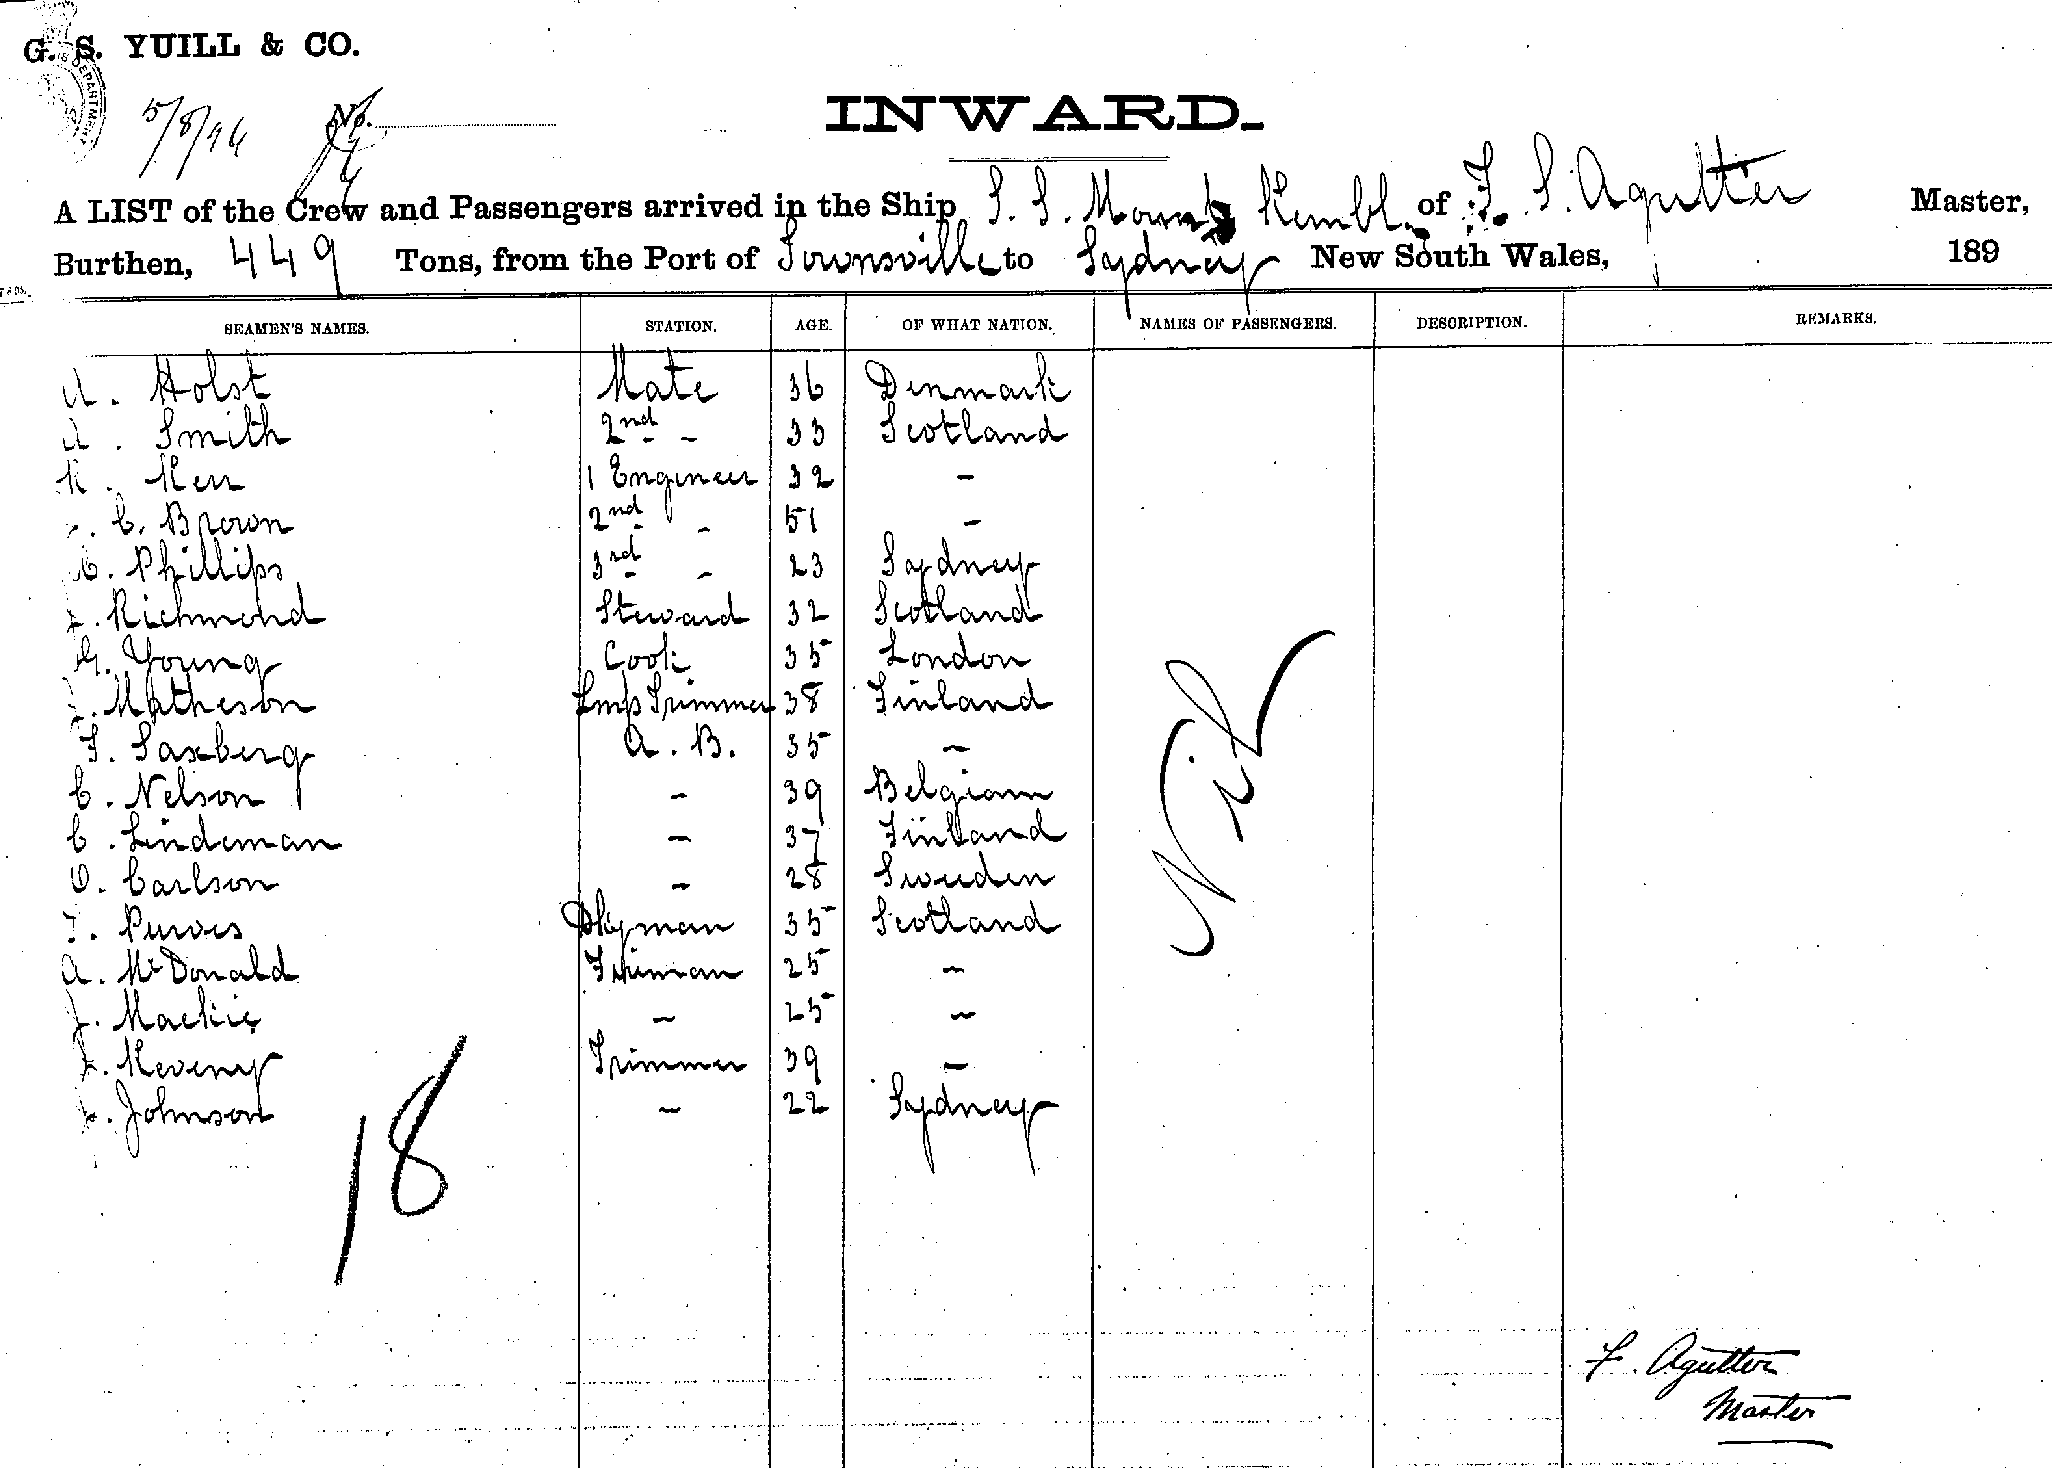 G. S. YUILL & CO.
5/8/96 No.
INWARD.
A LIST of the Crew and Passengers arrived in the Ship S. S. Mount Kembl. of F. S. Agutter Master,
Burthen, 449 Tons, from the Port of Townsville to Sydney New South Wales, 189
SEAMEN'S NAMES. STATION. AGE. OF WHAT NATION. NAMES OF PASSENGERS. DESCRIPTION. REMARKS.
A. Holst Mate 36 Denmark
A. Smith 2nd - - 33 Scotland
K. Kerr 1 Engineer 32 -
C. Brown 2nd - - 51 -
C. Phillips 3rd - - 23 Sydney
Richmond Steward 32 Scotland
G. Young Cook 35 London
Matheson Lmp Trimmer 38 Finland
F. Saxberg A. B. 35 -
C. Nelson - 39 Belgium
C. Lindeman - 37 Finland
O. Carlson - 28 Sweden
T. Purves Dkyman 35 Scotland
A. McDonald Fireman 25 -
J. Mackie - 25 -
Keveny Trimmer 39 -
Johnson - 22 Sydney
Nil
18
F. Agutter
Master